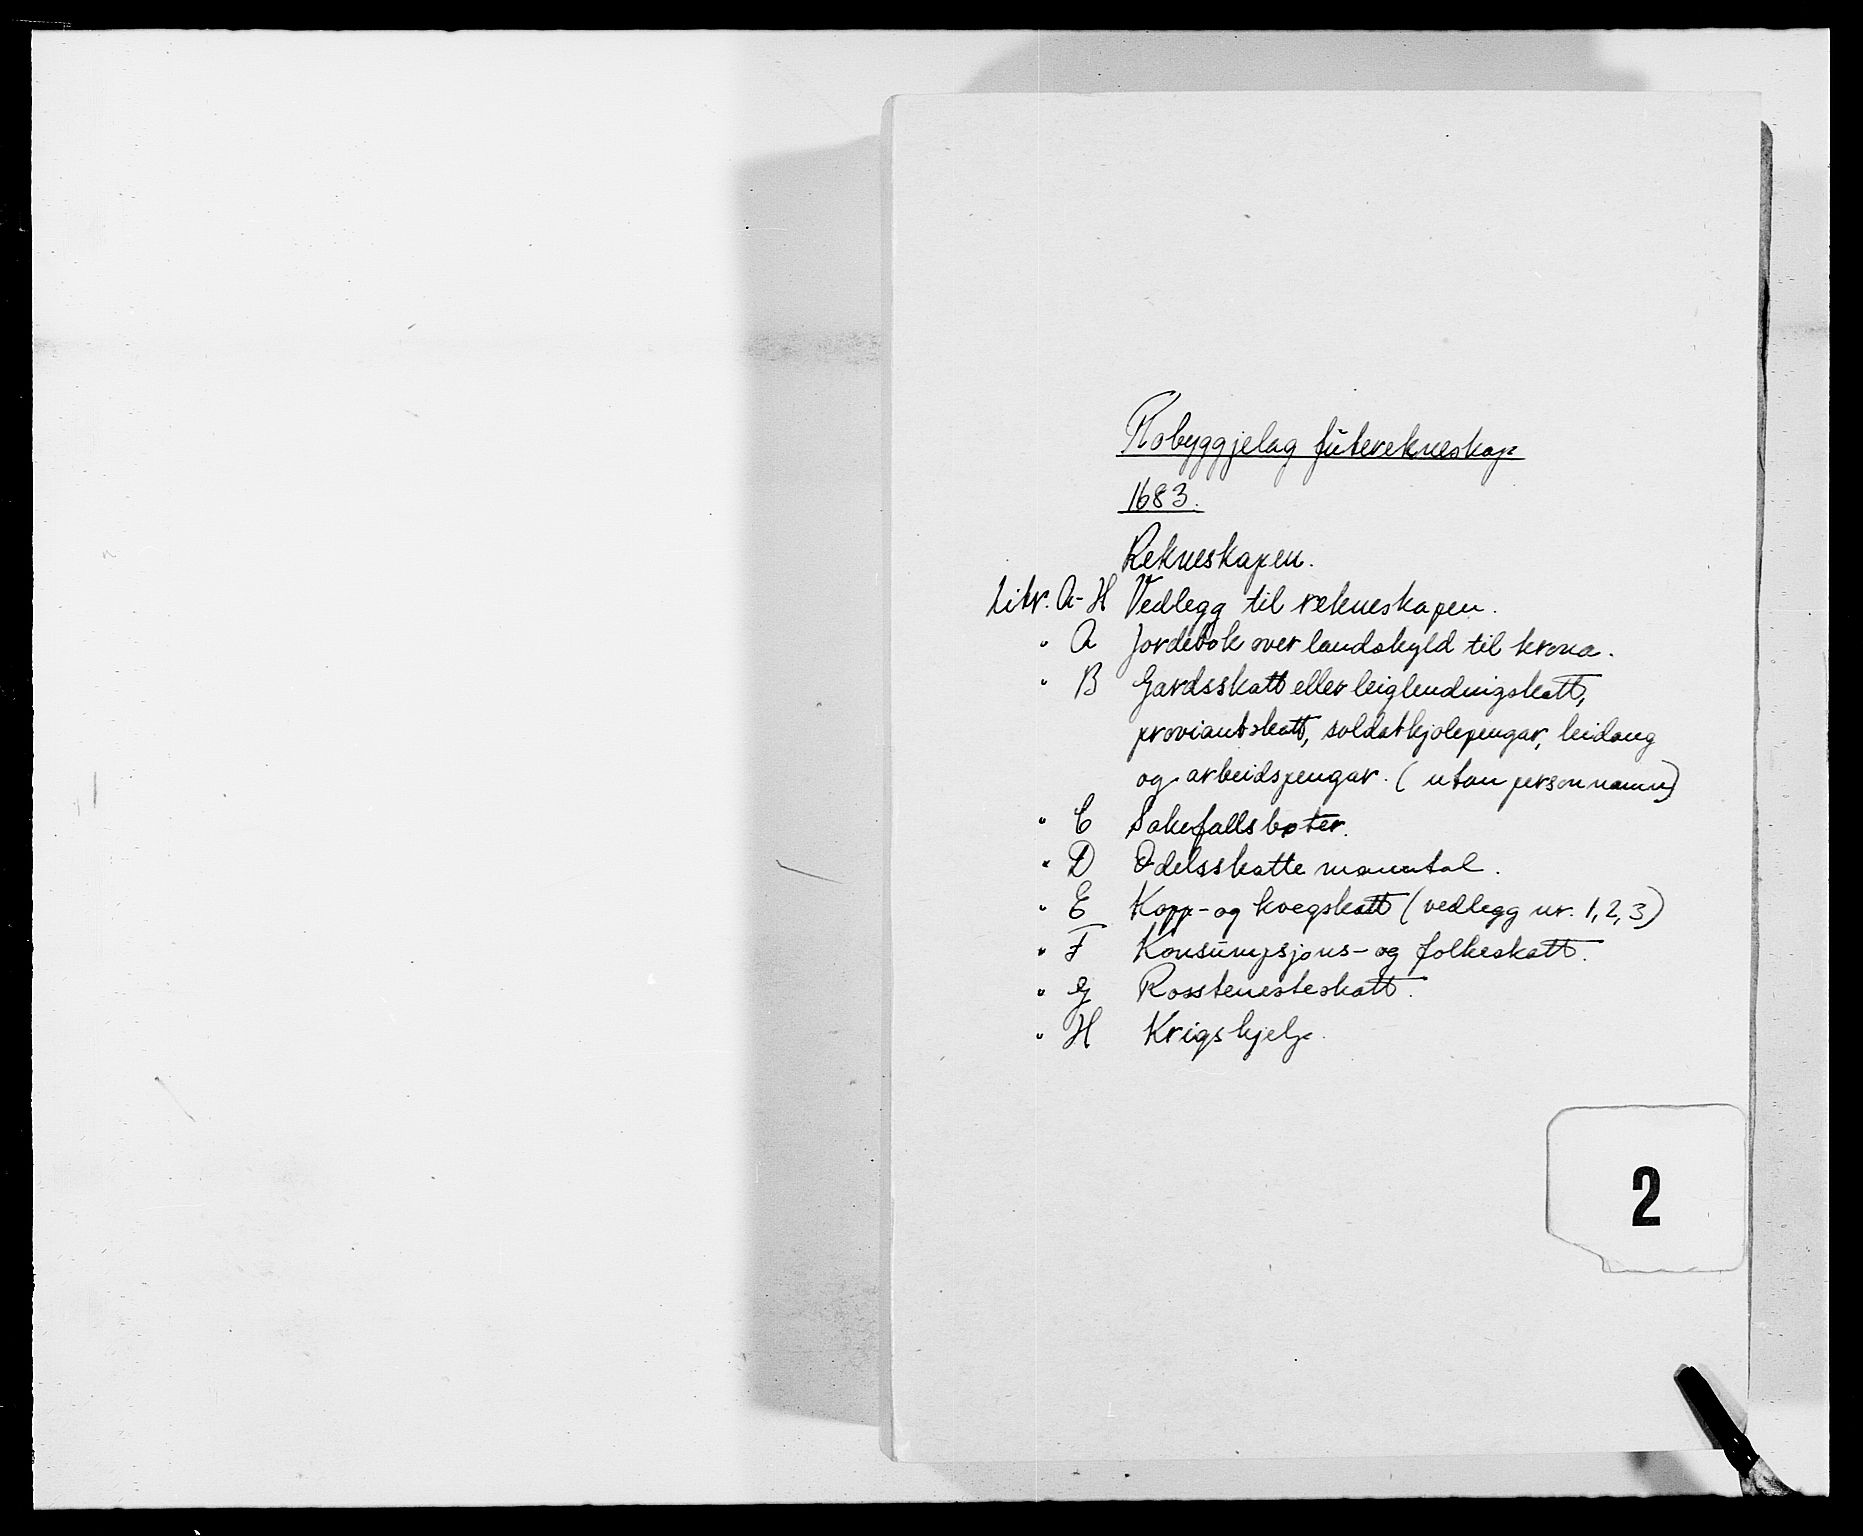 Robyggjelag futerekneskap
1683.
Rekneskapen.
Litr. A-H Vedlegg til rekneskapen.
" A Jordebok over landskyld til krona.
" B Gardsskatt eller leiglendingskatt,
proviantskatt, soldatkjolepengar, leidang
og arbeidspengar. (utan personnamn)
" C Sakefallsbøter.
" D Odelsskatte manntal.
" E Kopp- og kvegskatt (vedlegg nr. 1, 2, 3)
" F Konsumpsjons- og folkeskatt.
" G Rosstenesteskatt.
" H Krigshjelp.
2